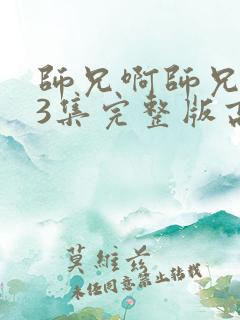 師兄啊師兄
3集完整版高
莫維茲
未经同意禁止转载